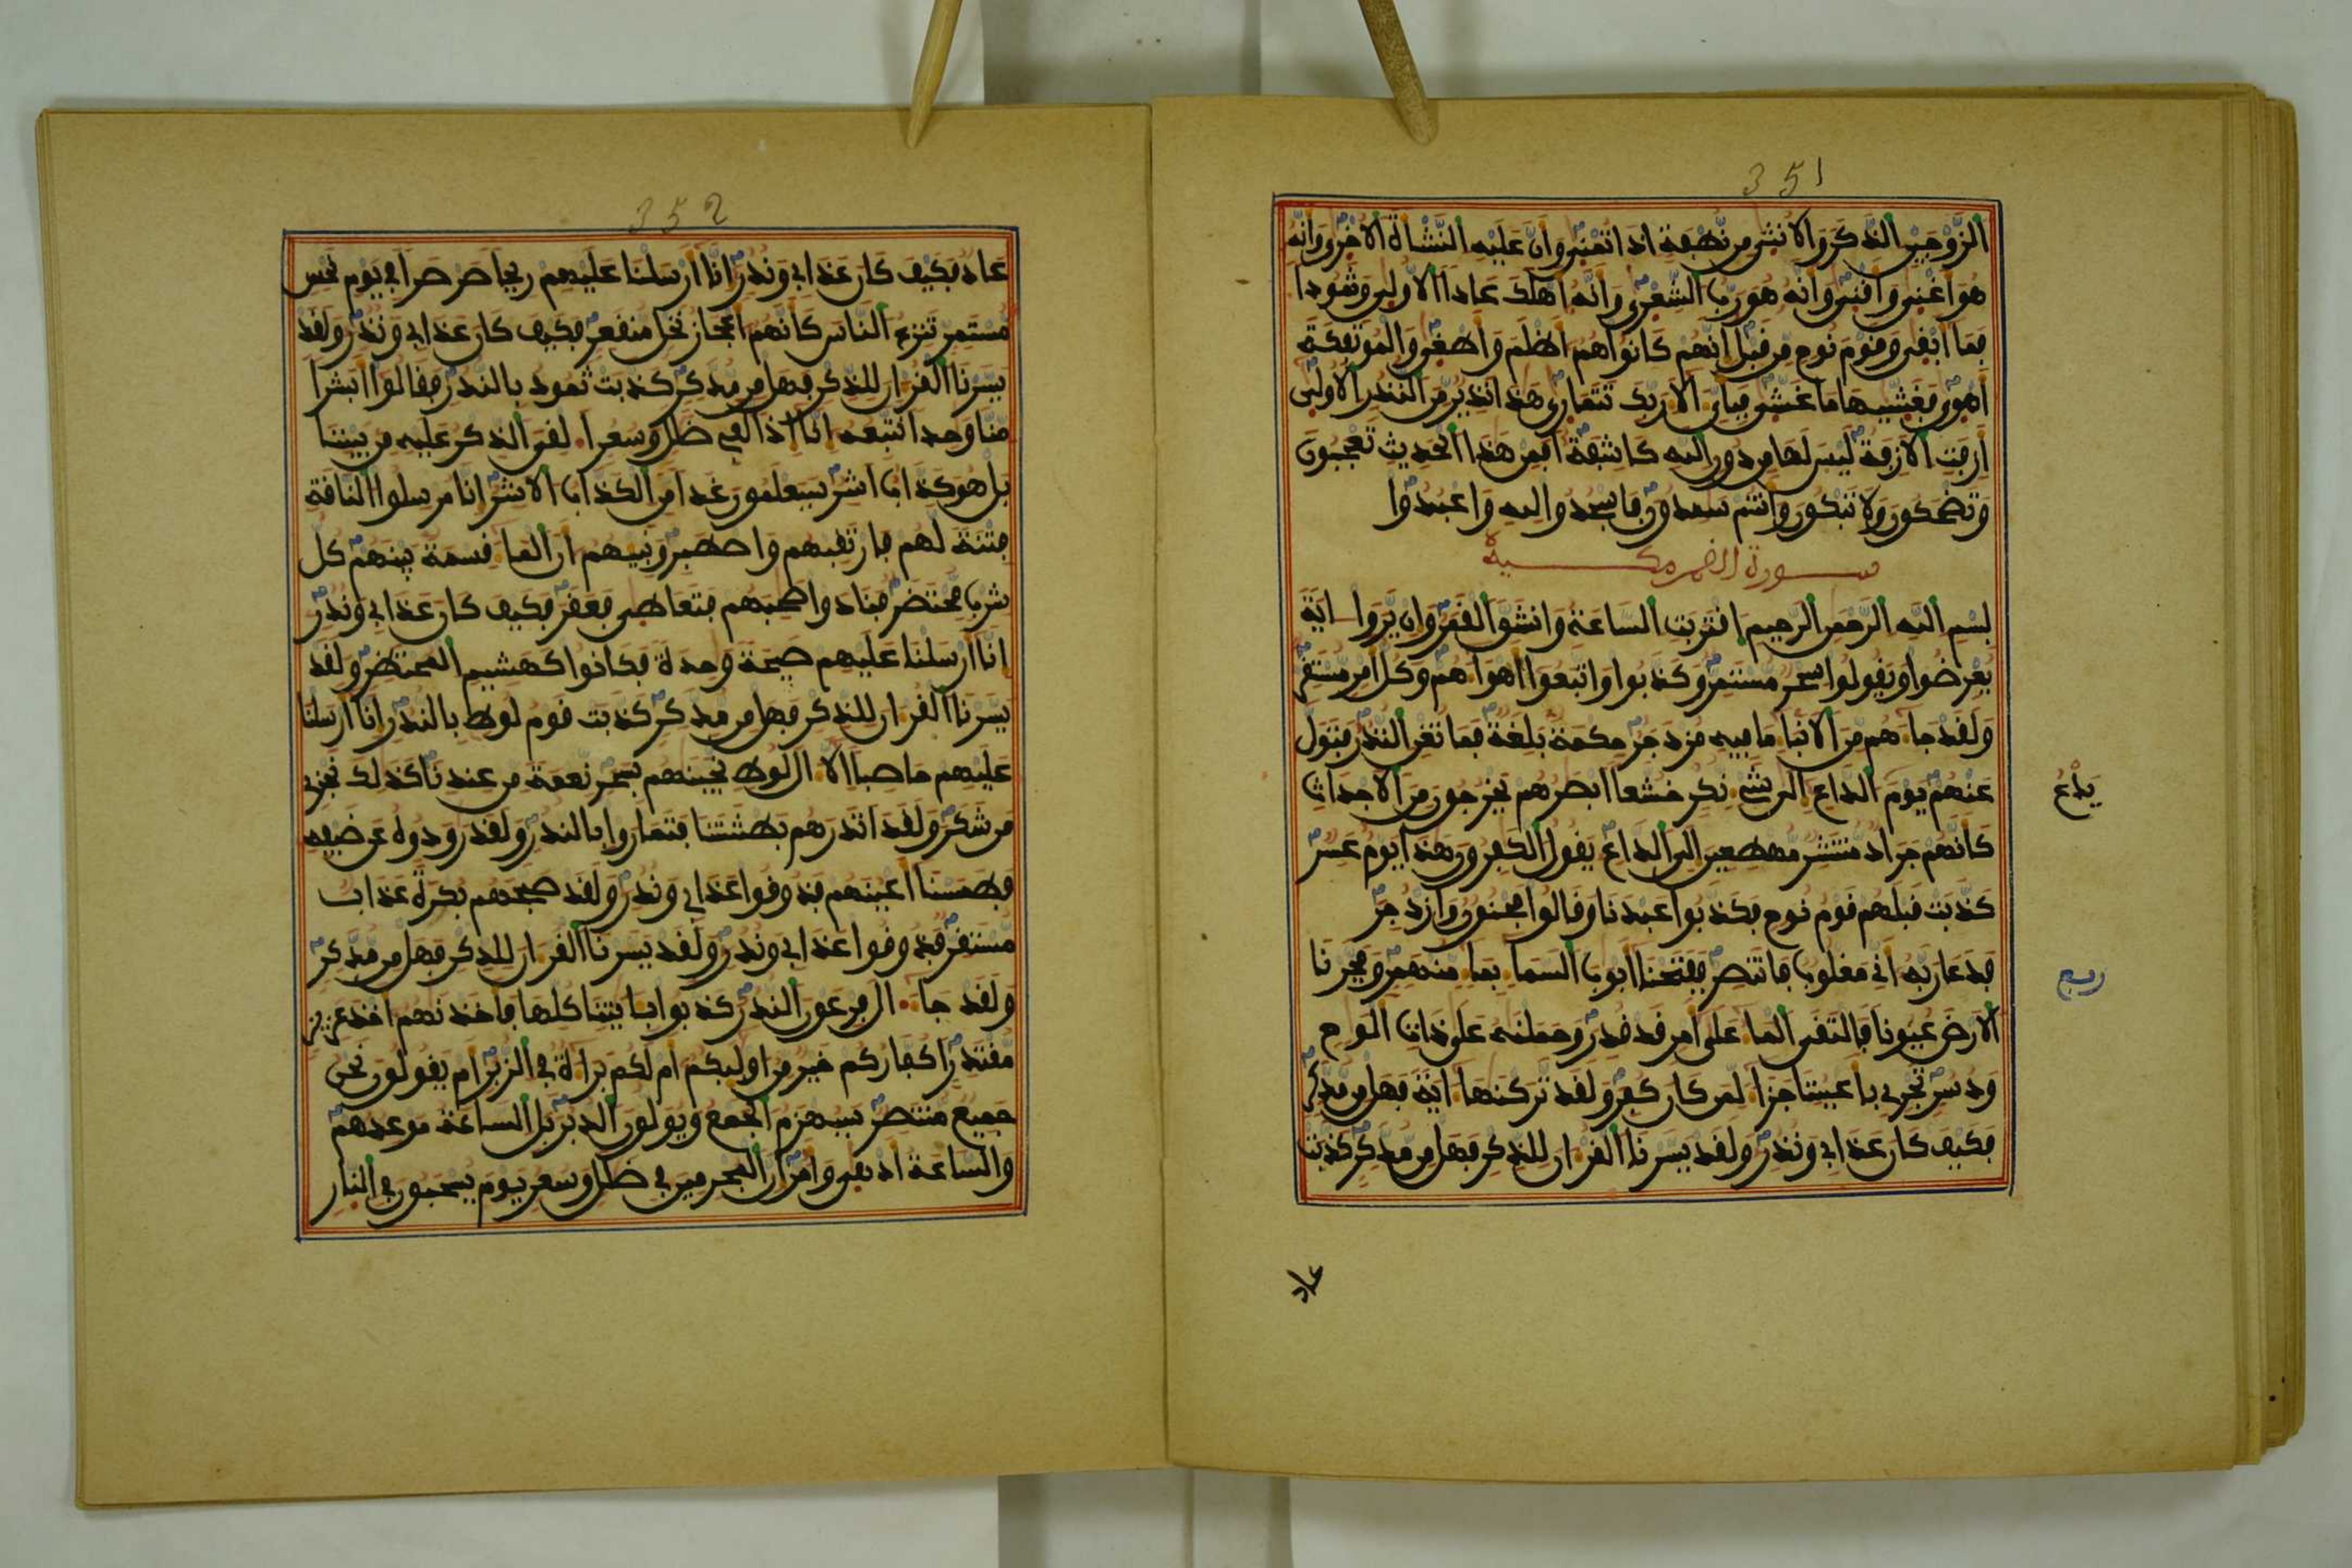 351
الزوجين الذكر والانثى من نطفة اذا تمنى وان عليه النشأة الاخرى وانه
هو اغنى واقنى وانه هو رب الشعرى وانه اهلك عادا الاولى وثمودا
فما ابقى وقوم نوح من قبل انهم كانوا هم اظلم واطغى والموتفكة
اهوى فغشيها ما غشى فبأى الا ربك تتمارى هذا نذير من النذر الاولى
ازفت الازفة ليس لها من دون الله كاشفة افمن هذا الحديث تعجبون
وتضحكون ولا تبكون وانتم سمدون فاسجدوا لله واعبدوا
سورة القمر مكية
بسم الله الرحمن الرحيم اقتربت الساعة وانشق القمر وان يروا اية
يعرضوا ويقولوا سحر مستمر وكذبوا واتبعوا اهواهم وكل امر مستقر
ولقد جاهم من الانبا ما فيه مزدجر حكمة بلغة فما تغن النذر فتول
عنهم يوم الداع الى شي نكر خشعا ابصرهم يخرجون من الاجداث
يدع
كانهم جراد منتشر مهطعين الى الداع يقول الكفرون هذا يوم عسر
كذبت قبلهم قوم نوح فكذبوا عبدنا وقالوا مجنون وازدجر
فدعا ربه انى مغلوب فانتصر ففتحنا ابوب السما بما منهمر وفجرنا
ربع
الارض عيونا فالتقى الما على امر قد قدر وحملنه على ذات الوح
ودسر تجرى باعيننا جزا لمن كان كفر ولقد تركنها اية فهل من مدكر
فكيف كان عذابى ونذر ولقد يسرنا القران للذكر فهل من مدكر كذبت
عاد
352
عاد فكيف كان عذابى ونذر انا ارسلنا عليهم ريحا صرصرا فى يوم نحس
مستمر تنزع الناس كانهم اعجاز نخل منقعر فكيف كان عذابى ونذر ولقد
يسرنا القران للذكر فهل من مدكر كذبت ثمود بالنذر فقالوا ابشرا
منا وحدا نتبعه انا اذا لفى ضلل وسعر القى الذكر عليه من بيننا
بل هو كذاب اشر سيعلمون غدا من الكذاب الاشر انا مرسلوا الناقة
فتنة لهم فارتقبهم واصطبر ونبيهم ان الما قسمة بينهم كل
شرب محتضر فنادوا صحبهم فتعاطى فعقر فكيف كان عذابى ونذر
انا ارسلنا عليهم صيحة وحدة فكانوا كهشيم المحتظر ولقد
يسرنا القران للذكر فهل من مدكر كذبت قوم لوط بالنذر انا ارسلنا
عليهم حاصبا الا ال لوط نجينهم بسحر نعمة من عندنا كذلك نجزى
من شكر ولقد انذرهم بطشتنا فتماروا بالنذر ولقد رودوه عن ضيفه
فطمسنا اعينهم فذوقوا عذابى ونذر ولقد صبحهم بكرة عذاب
مستقر فذوقوا عذابى ونذر ولقد يسرنا القران للذكر فهل من مدكر
ولقد جا ال فرعون النذر كذبوا بايتنا كلها فاخذنهم اخذ عزيز
مقتدر اكفاركم خير من اوليكم ام لكم براة فى الزبر ام يقولون نحن
جميع منتصر سيهزم الجمع ويولون الدبر بل الساعة موعدهم
والساعة ادهى وامر ان المجرمين فى ضلل وسعر يوم يسحبون فى النار